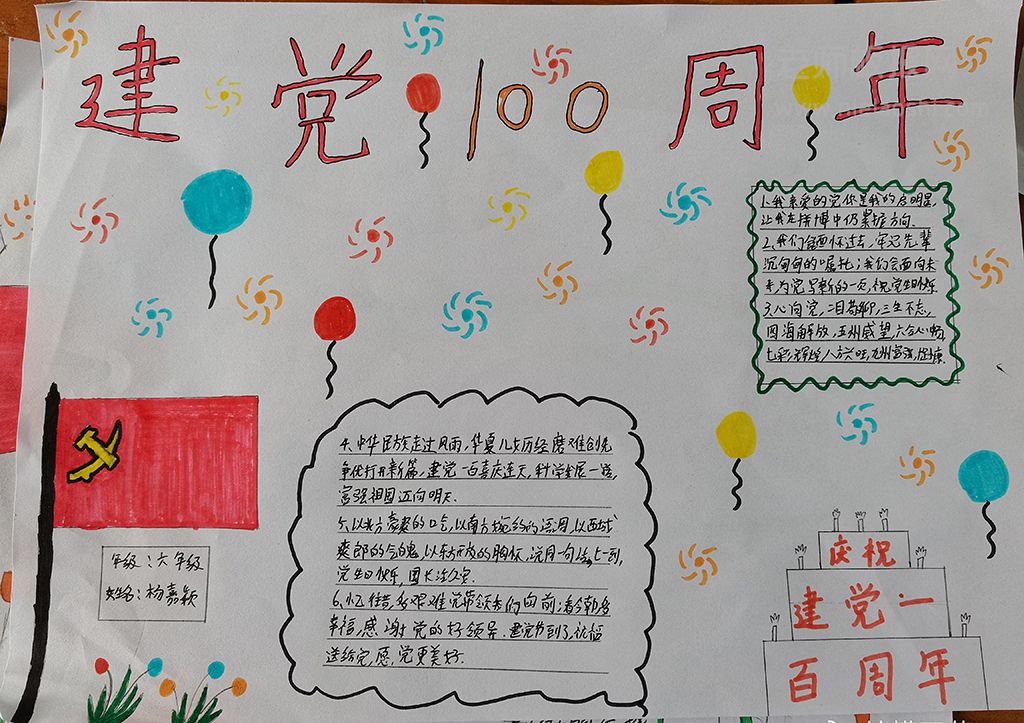 建党100周年
1、我亲爱的党你是我的启明星,
让我在拼搏中仍掌握方向.
2、我们会面怀过去,牢记先辈
沉甸甸的嘱托;我们会面向未
来,为党写新的一页,祝党生日快乐
3、心向党,二目 三生不忘,
四海解放,五州威望,六合心畅,
七彩辉煌,八方兴旺,九州富强,
4、中华民族走过风雨,华夏儿女历经磨难创先
争优打开新篇,建党一百喜庆连天,科学发展一路,
富强祖国迈向明天.
5、以北方豪爽的口气,以南方婉约的语调,以西域
爽郎的气魄,以东方 的胸怀,说同一句话
党生日快乐,国长治久安.
6、忆往昔,多艰难党带领我们向前;看今朝,多
幸福,感谢党的好领导.建党节到了,祝福
送给党,愿,党更美好.
年级:六年级
姓名:杨嘉颖
庆祝
建党一
百周年